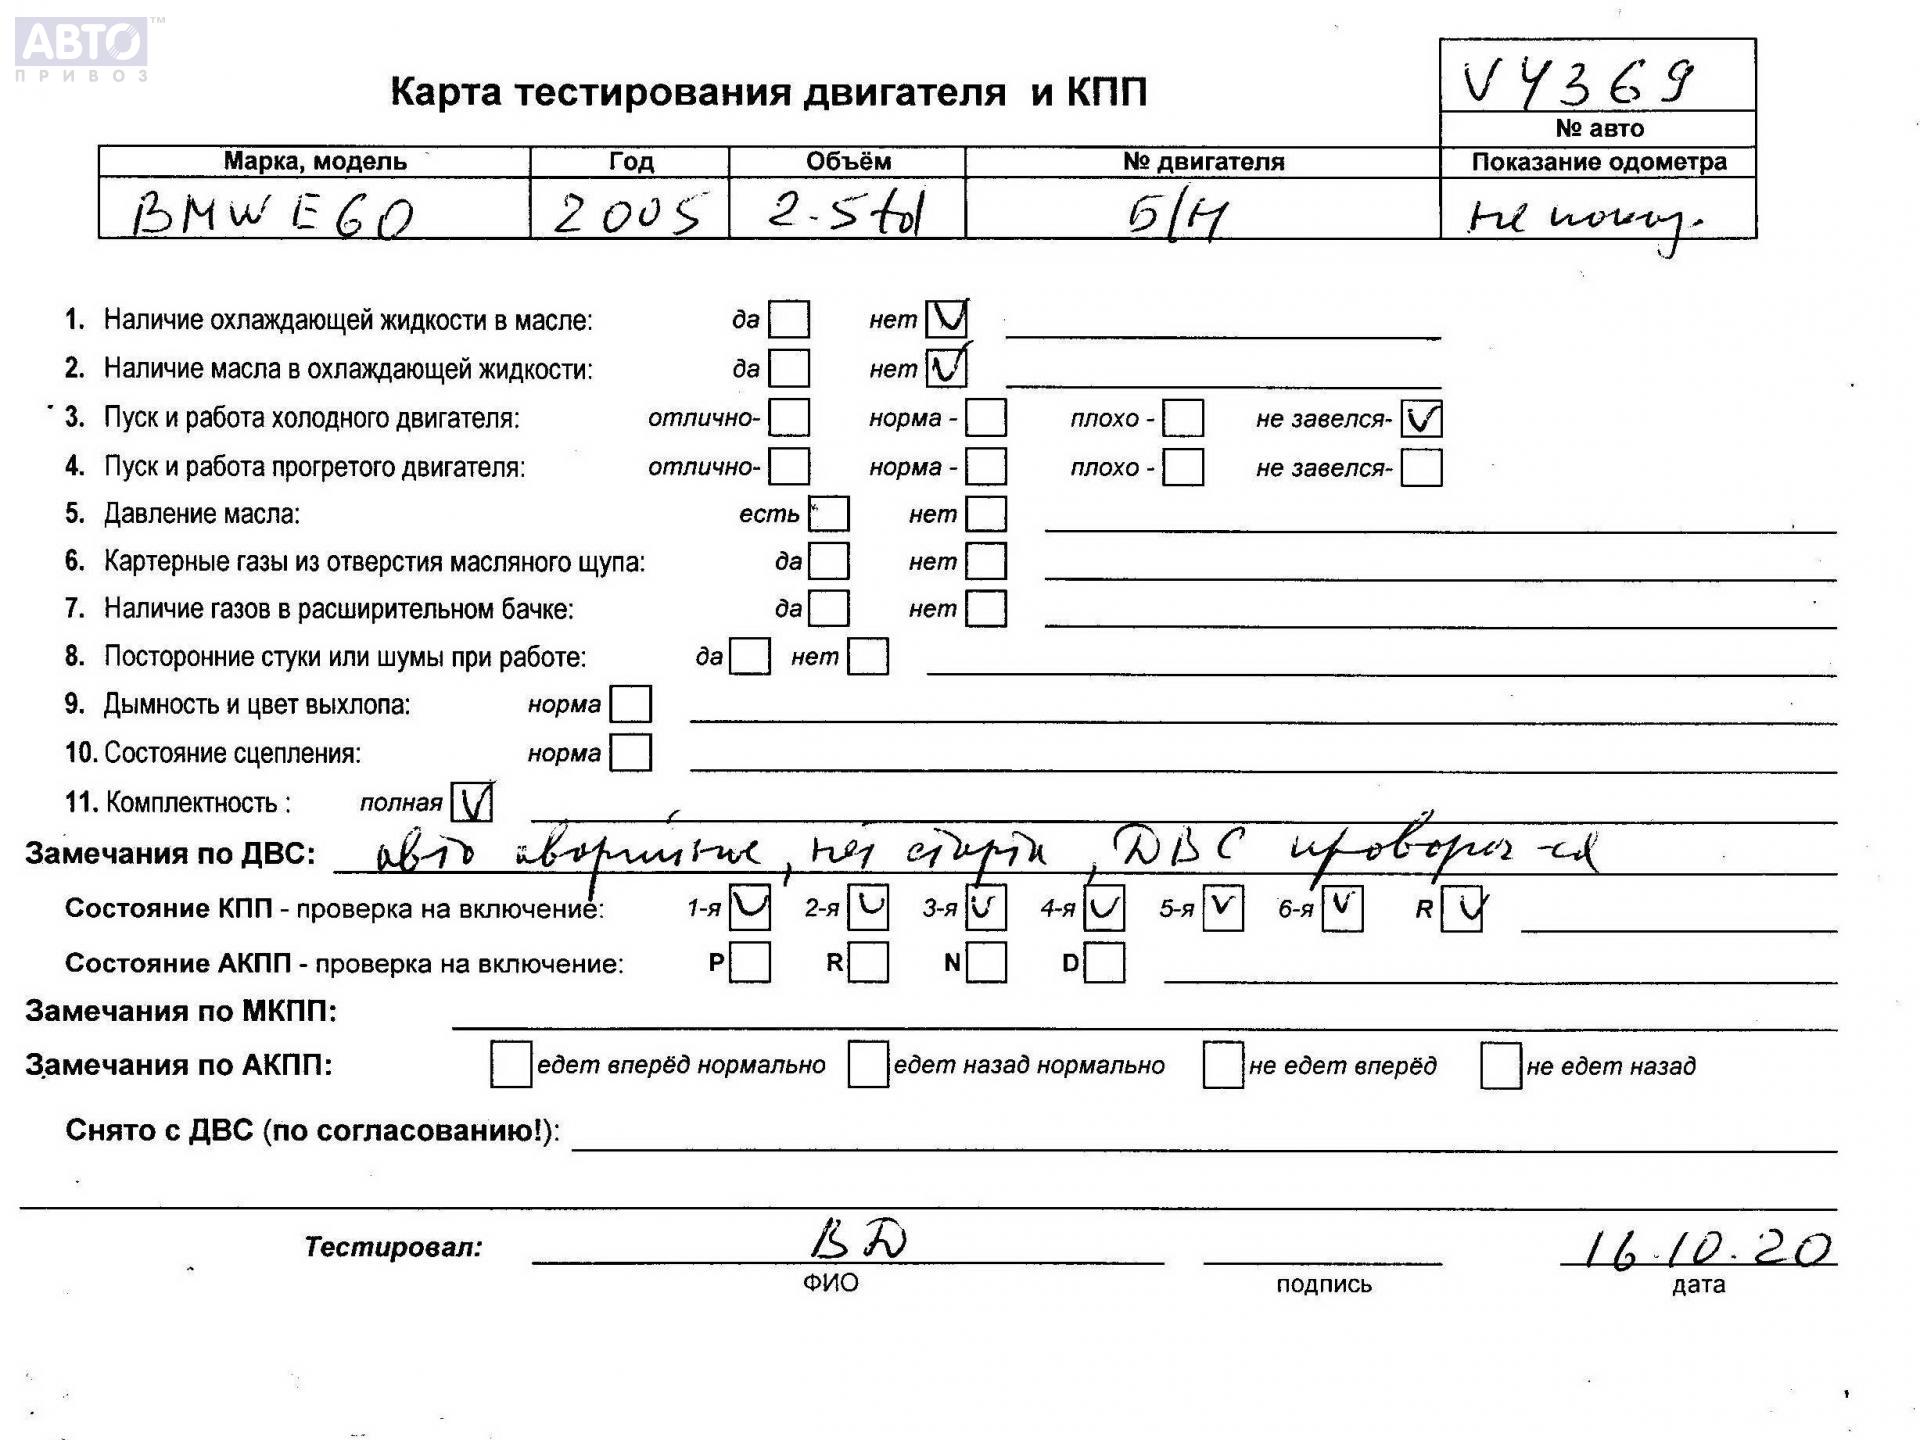 АВТО™
ПРИВОЗ
Карта тестирования двигателя и КПП
V4369
№ авто
Марка, модель Год Объём № двигателя Показание одометра
BMW E60 2005 2.5td Б/Н не показ.
1. Наличие охлаждающей жидкости в масле: да нет V
2. Наличие масла в охлаждающей жидкости: да нет V
3. Пуск и работа холодного двигателя: отлично- норма - плохо - не завелся- V
4. Пуск и работа прогретого двигателя: отлично- норма - плохо - не завелся-
5. Давление масла: есть нет
6. Картерные газы из отверстия масляного щупа: да нет
7. Наличие газов в расширительном бачке: да нет
8. Посторонние стуки или шумы при работе: да нет
9. Дымность и цвет выхлопа: норма
10. Состояние сцепления: норма
11. Комплектность : полная V
Замечания по ДВС: авто аварийное, нет старта, ДВС проворач-ся
Состояние КПП - проверка на включение: 1-я V 2-я V 3-я V 4-я V 5-я V 6-я V R V
Состояние АКПП - проверка на включение: P R N D
Замечания по МКПП:
Замечания по АКПП: едет вперёд нормально едет назад нормально не едет вперёд не едет назад
Снято с ДВС (по согласованию!):
Тестировал: ВД 16.10.20
ФИО подпись дата